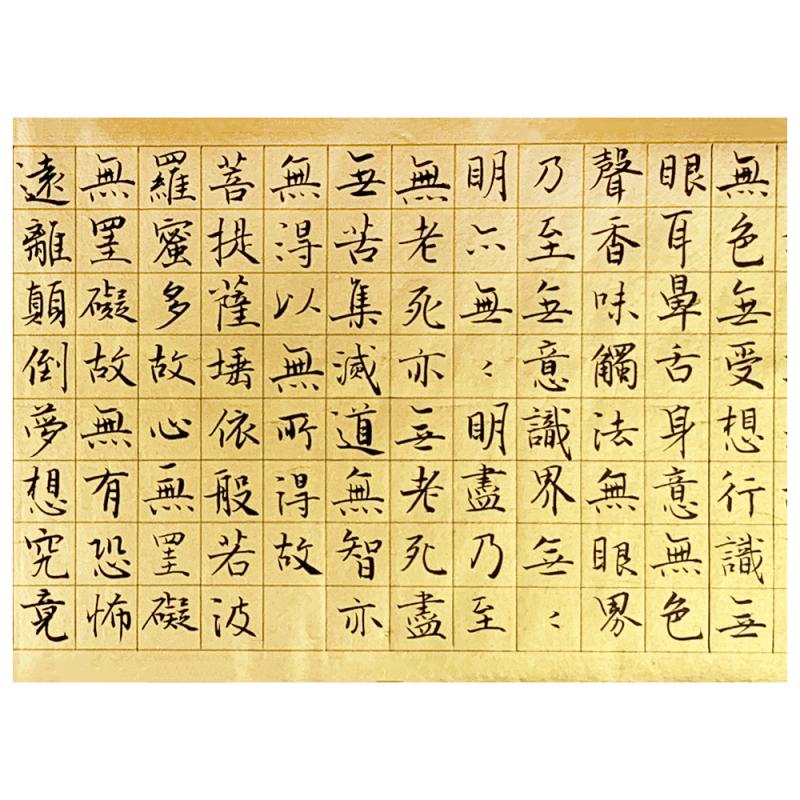 無色無受想行識無
眼耳鼻舌身意無色
聲香味觸法無眼界
乃至無意識界無〻
明亦無〻明盡乃至
無老死亦無老死盡
無苦集滅道無智亦
無得以無所得故
菩提薩埵依般若波
羅蜜多故心無罣礙
無罣礙故無有恐怖
遠離顛倒夢想究竟